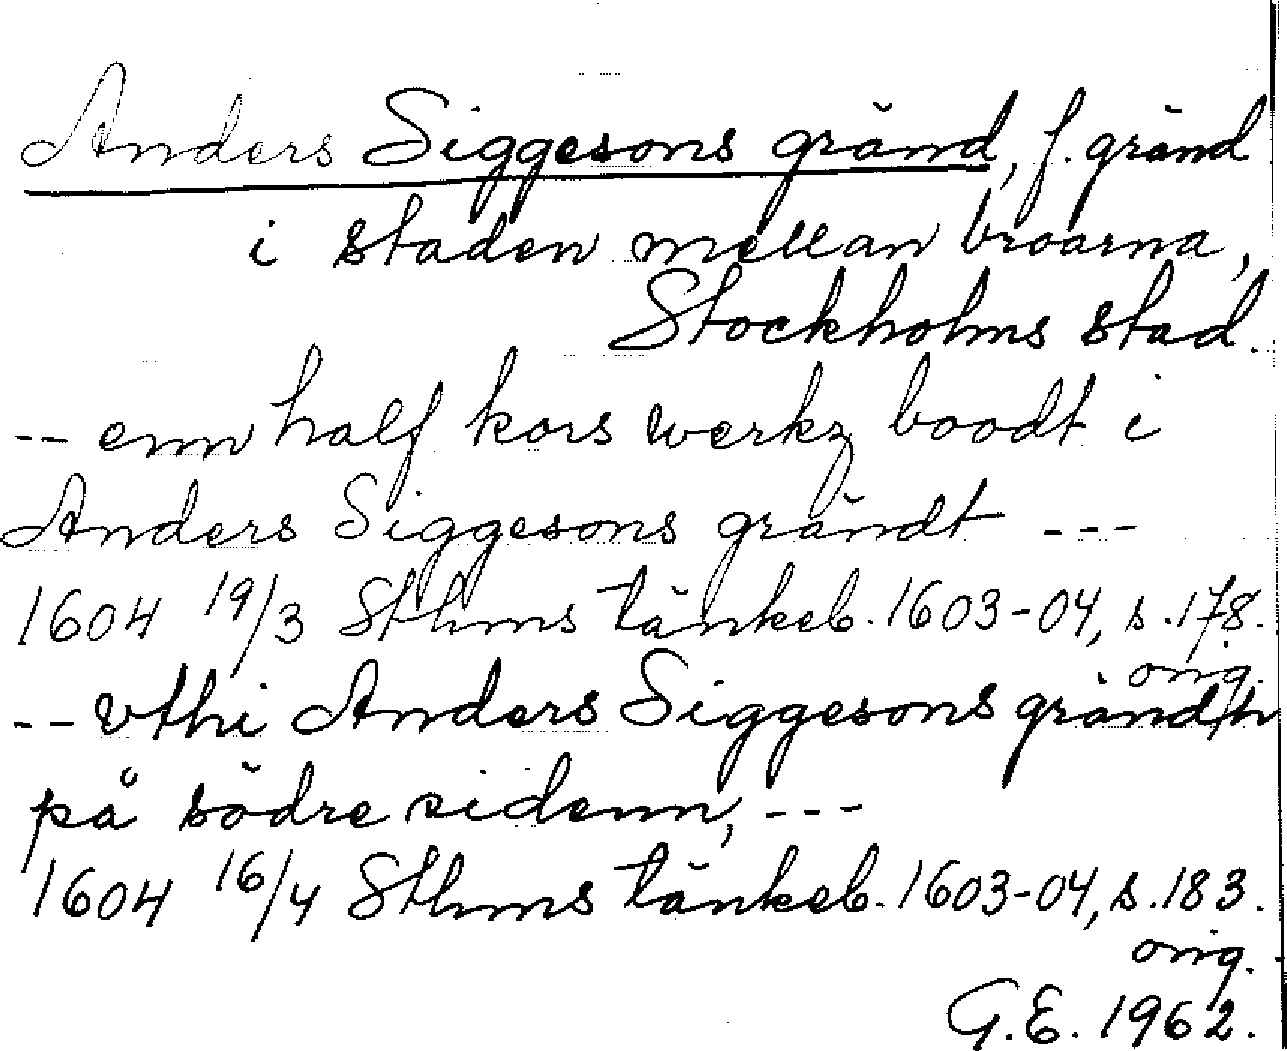 Anders Siggesons gränd, f. gränd
i staden mellan broarna,
Stockholms stad.
-- enn half kors werkz boodt i
Anders Siggesons grändt ---
1604 19/3 Sthms tänkeb. 1603-04, s. 178.
orig.
-- vthi Anders Siggesons grändh
på södre sidenn, ---
1604 16/4 Sthms tänkeb. 1603-04, s. 183.
orig.
G.E. 1962.